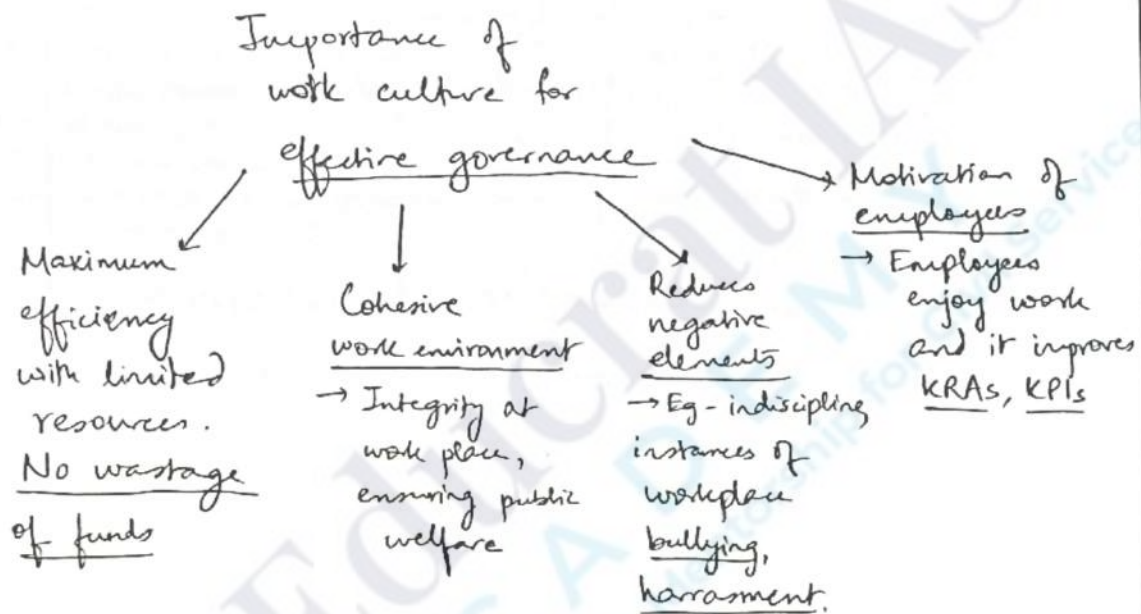 Importance of
work culture for
effective governance
Maximum
efficiency
with limited
resources.
No wastage
of funds
Cohesive
work environment
→ Integrity at
work place,
ensuring public
welfare
Reduces
negative
elements
→ Eg - indiscipline,
instances of
workplace
bullying,
harrasment.
→ Motivation of
employees
→ Employees
enjoy work
and it improves
KRAs, KPIs
EducratIAS
ACADEMY
Mentorship for Civil Service